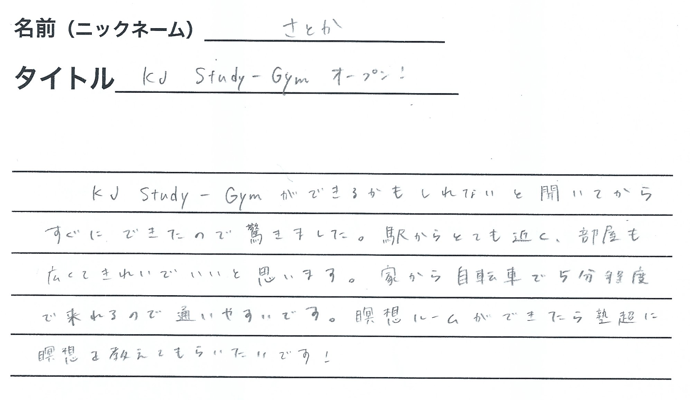 名前（ニックネーム） さとか
タイトル KJ Study-Gym オープン！
KJ Study-Gymができるかもしれないと聞いてから
すぐにできたので驚きました。駅からとても近く、部屋も
広くてきれいでいいと思います。家から自転車で5分程度
で来れるので通いやすいです。瞑想ルームができたら塾超に
瞑想を教えてもらいたいです！